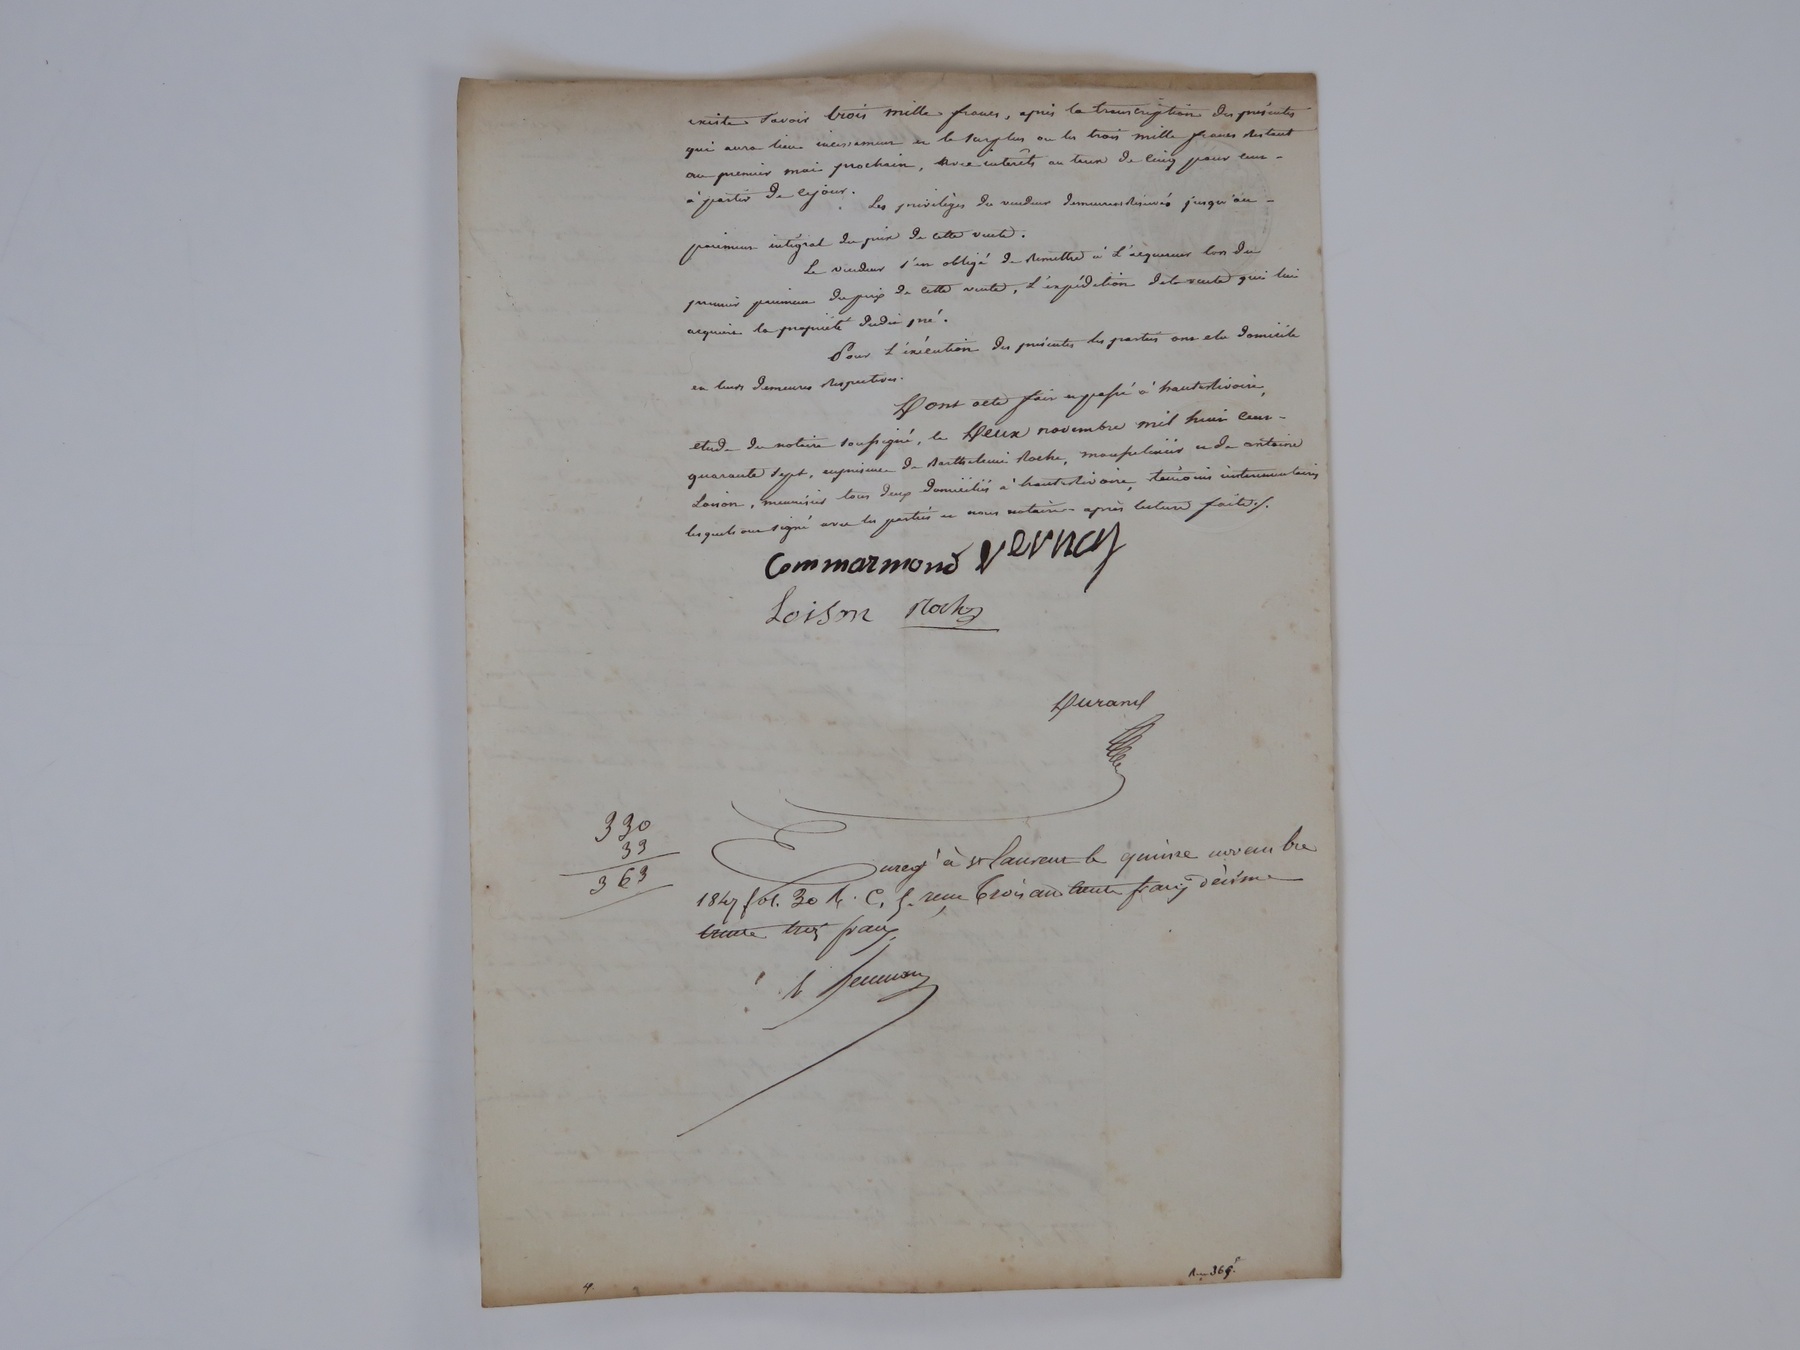 existe savoir trois mille francs, après la transcription des présentes
qui aura lieu incessament et le surplus ou les trois mille francs restant
au premier mai prochain, avec intérêts au taux de cinq pour cent
à partir de ce jour. Les privilèges du vendeur demeurent réservés jusqu'au
paiement intégral du prix de cette vente.
Le vendeur s'est obligé de remettre à l'acquéreur lors du
premier paiement du prix de cette vente, l'expédition de la vente qui lui
acquiert la propriété dudit pré.
Pour l'exécution des présentes les parties ont élu domicile
en leurs demeures respectives.
Dont acte fait et passé à hauterivoire,
etude du notaire soussigné, le deux novembre mil huit cent
quarante sept, en présence de Barthelemi Roche, et de antoine
Loison, menuisier tous deux domiciliés à hauterivoire, témoins instrumentaires
lesquels ont signé avec les parties et nous notaire après lecture faite ./.
Commarmond Vernay
Loison Roche
Durand
330
33
363
Enregé à St Laurent le quinze novembre
1847 fol. 30 R. C. 5. reçu trois cent trente francs décime
trente trois francs
4.
369